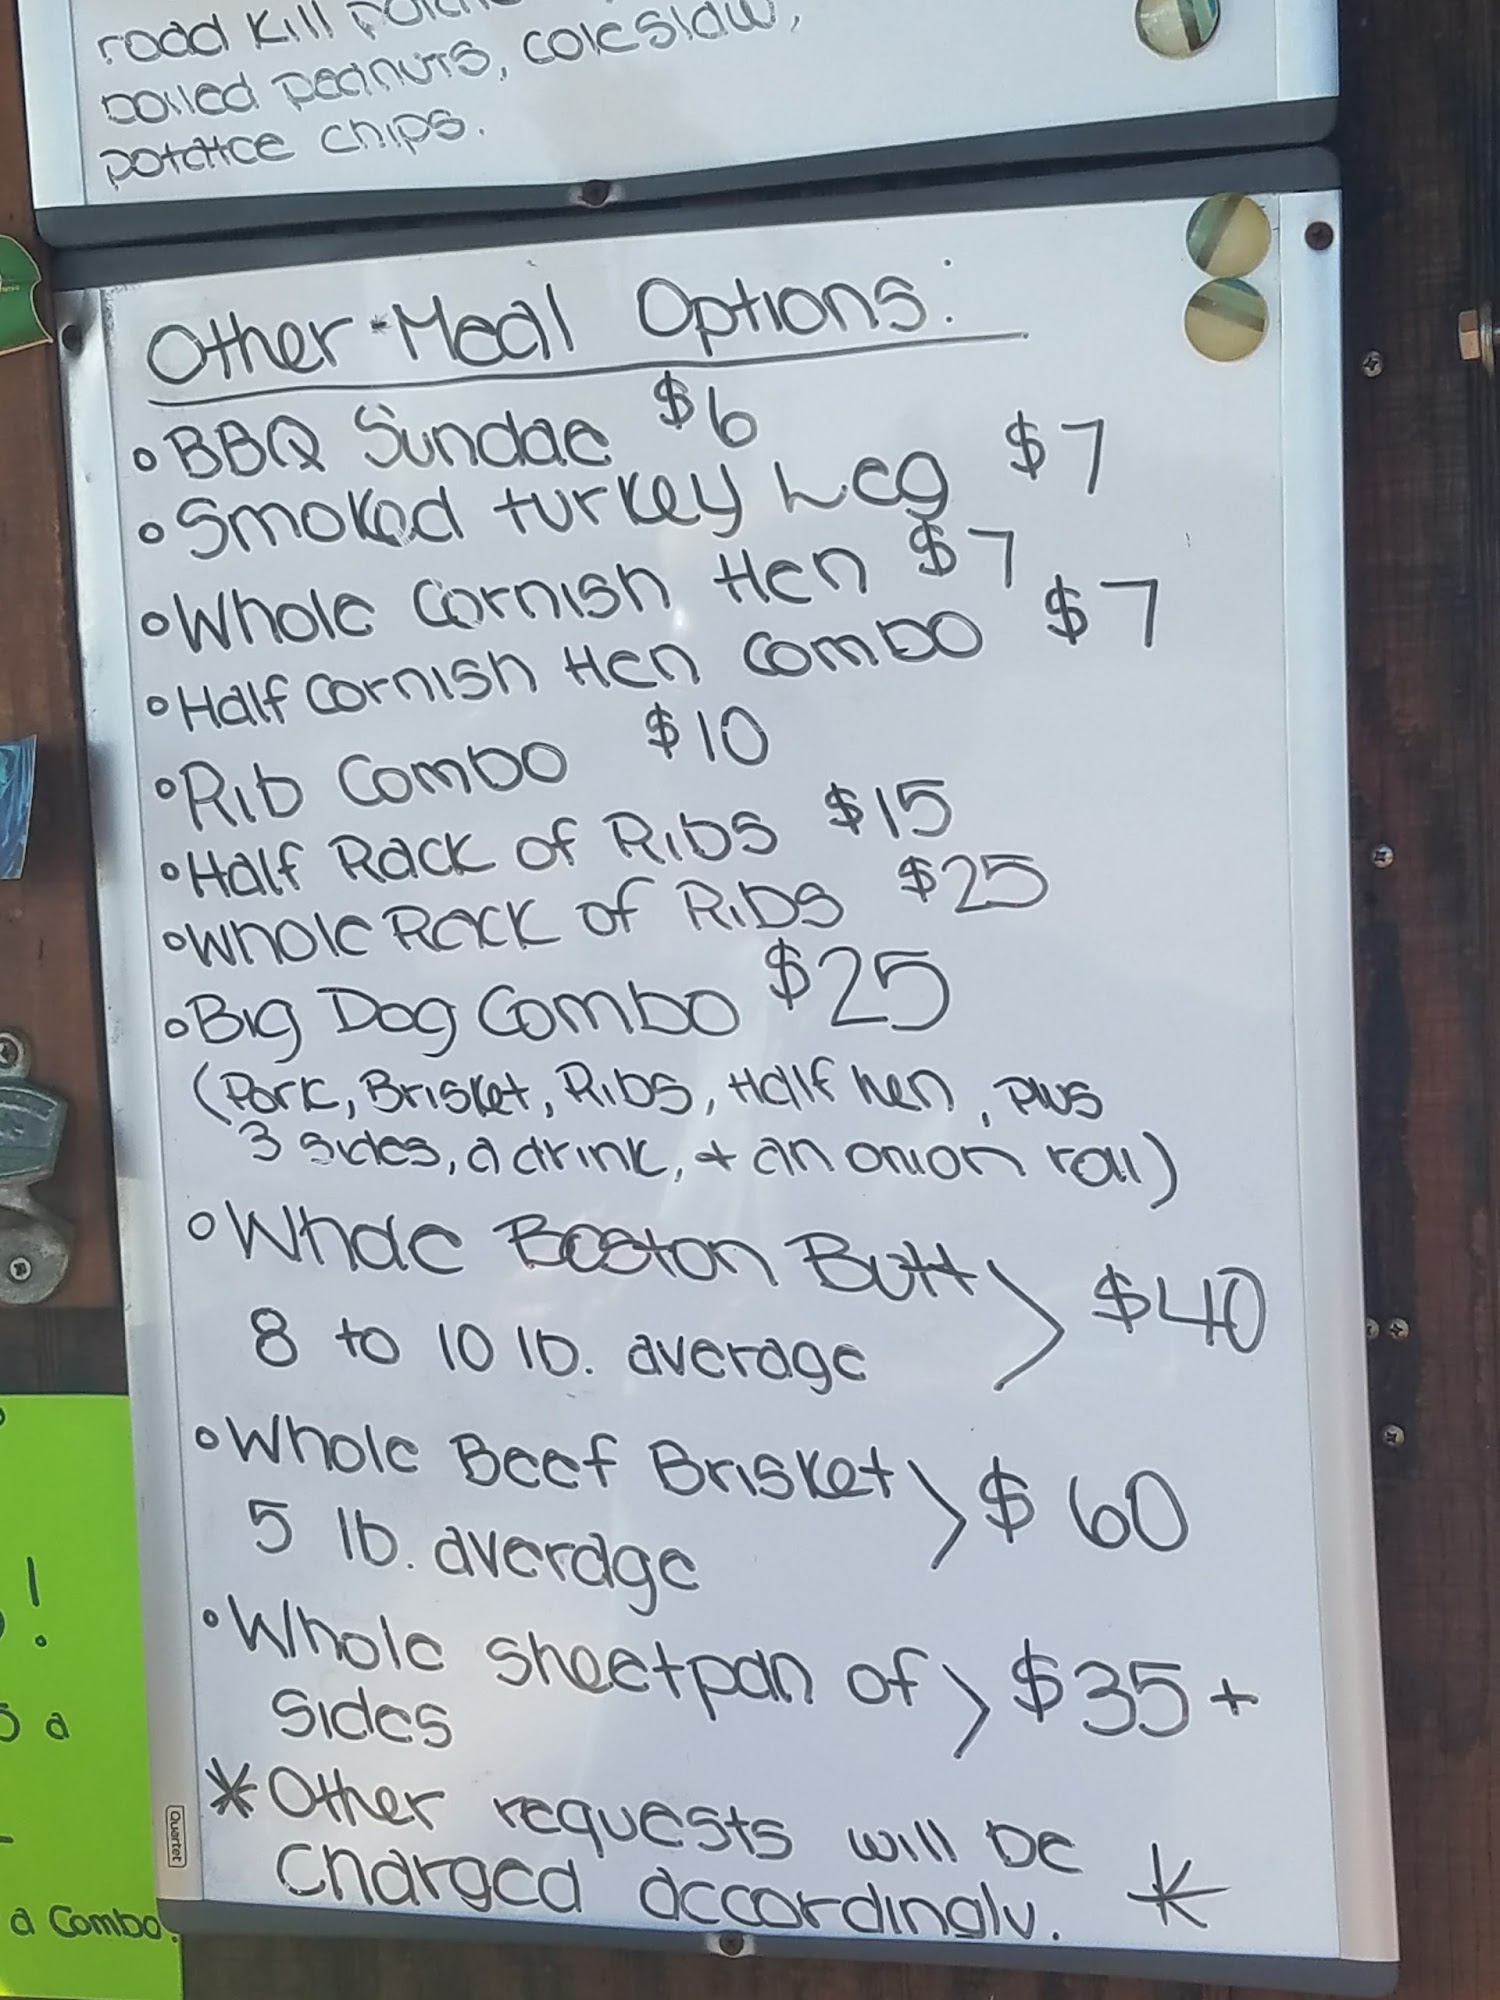 road kill
boiled peanuts, coleslaw,
potatoe chips.
Other Meal Options:
BBQ Sundae $6
Smoked turkey Leg $7
Whole Cornish Hen $7
Half Cornish Hen Combo $7
Rib Combo $10
Half Rack of Ribs $15
Whole Rack of Ribs $25
Big Dog Combo $25
(Pork, Brisket, Ribs, Half hen, plus
3 sides, a drink, + an onion roll)
Whole Boston Butt
8 to 10 lb. average > $40
Whole Beef Brisket
5 lb. average > $60
Whole sheetpan of > $35+
Sides
*Other requests will be
charged accordingly. *
Quartet
!
a
a Combo.